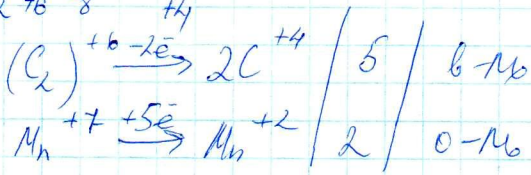 +6 +4
(C₂)⁺⁶ –2ē→ 2C⁺⁴ | 5 | в-ль
Mn⁺⁷ +5ē→ Mn⁺² | 2 | о-ль